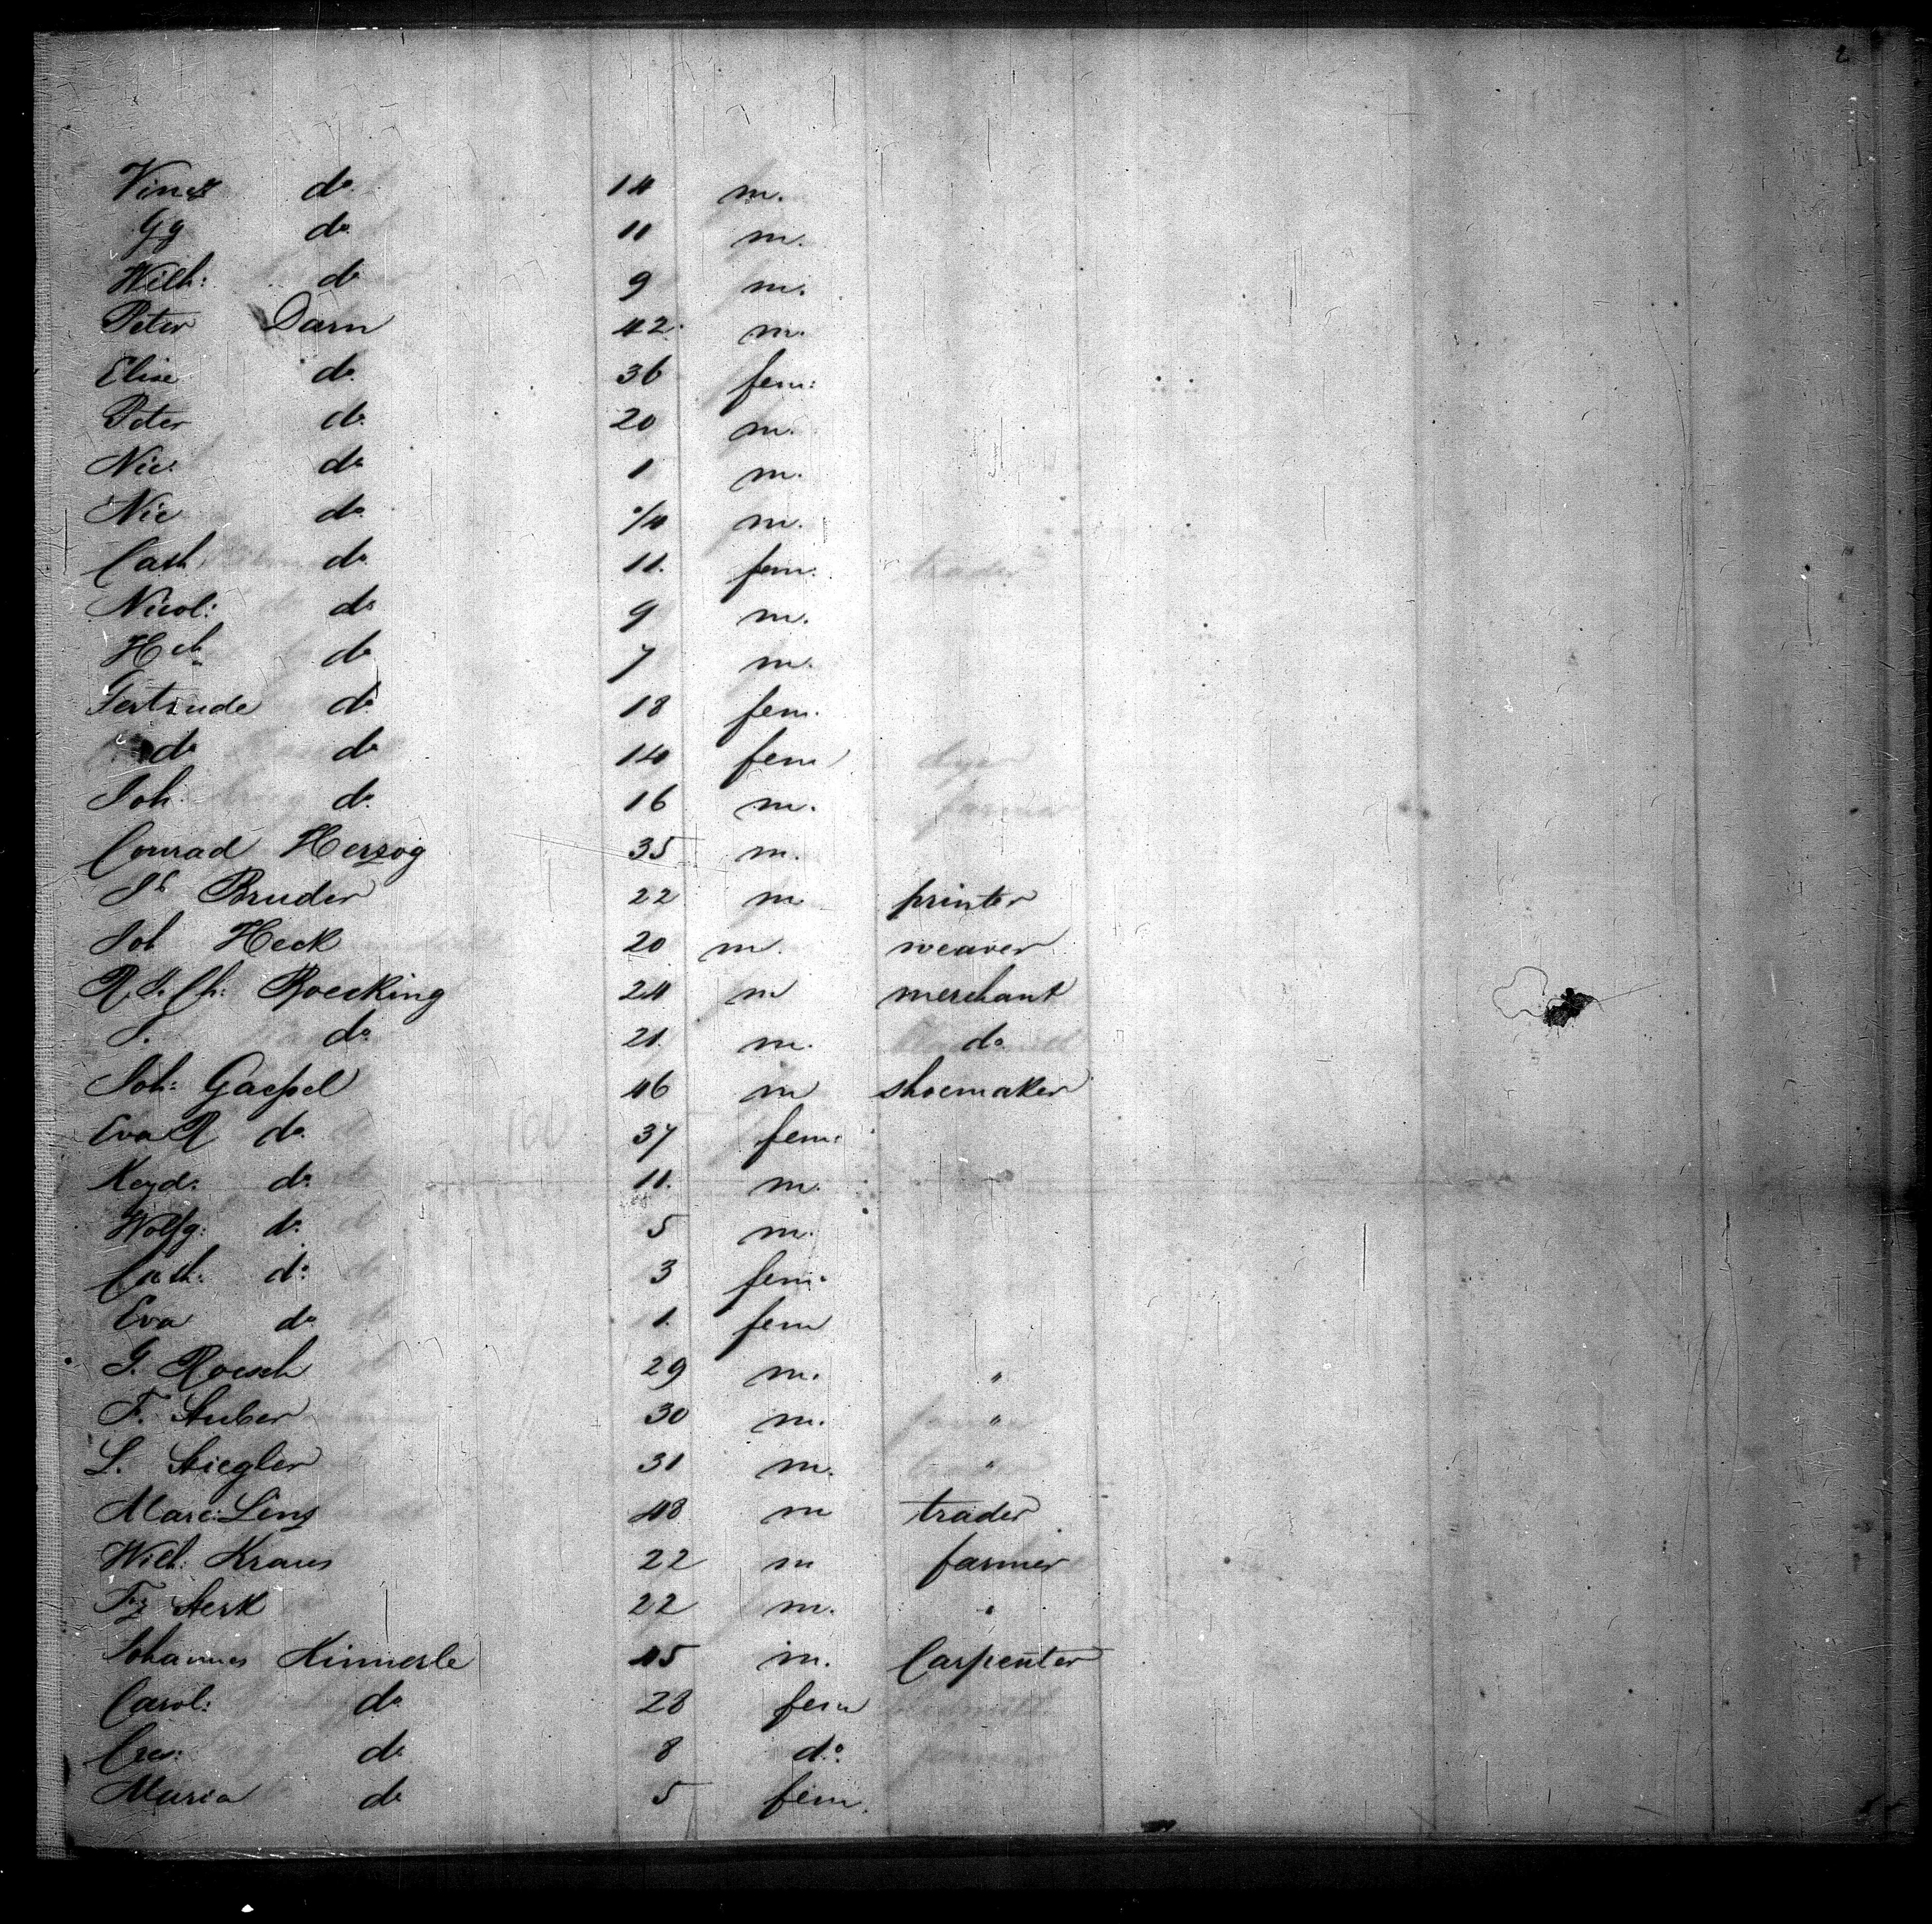 do 14 m.
Gg do 11 m.
Wilh: do 9 m.
Peter Darn 42 m.
Elise do 36 fem:
Peter do 20 m.
Nic: do 1 m.
Nic do m.
Cath do 11. fem.
Nicol: do 9 m.
Hch do 7 m.
Gertrude do 18 fem.
do do 14 fem
Joh do 16 m.
Conrad Herzog 35 m.
Bruder 22 m printer
Joh Heck 20 m. weaver
Roecking 24 m merchant
J. do 21. m. do
Joh: Gaeßel 46 m shoemaker
Eva R do 37 fem:
do 11. m.
Wolfg: do 5 m.
Cath: do 3 fem.
Eva do 1. fem
G. Roesch 29 m. "
F. Stuber 30 m. "
L. Stiegler 31 m. "
Marc: Linz 48 m trader
Wilh: Kraus 22 m farmer
Fz Sterk 22 m. "
Johannes Kimmerle 45 m. Carpenter
Carol: do 28 fem
Cres: do 8 do.
Maria do 5 fem.